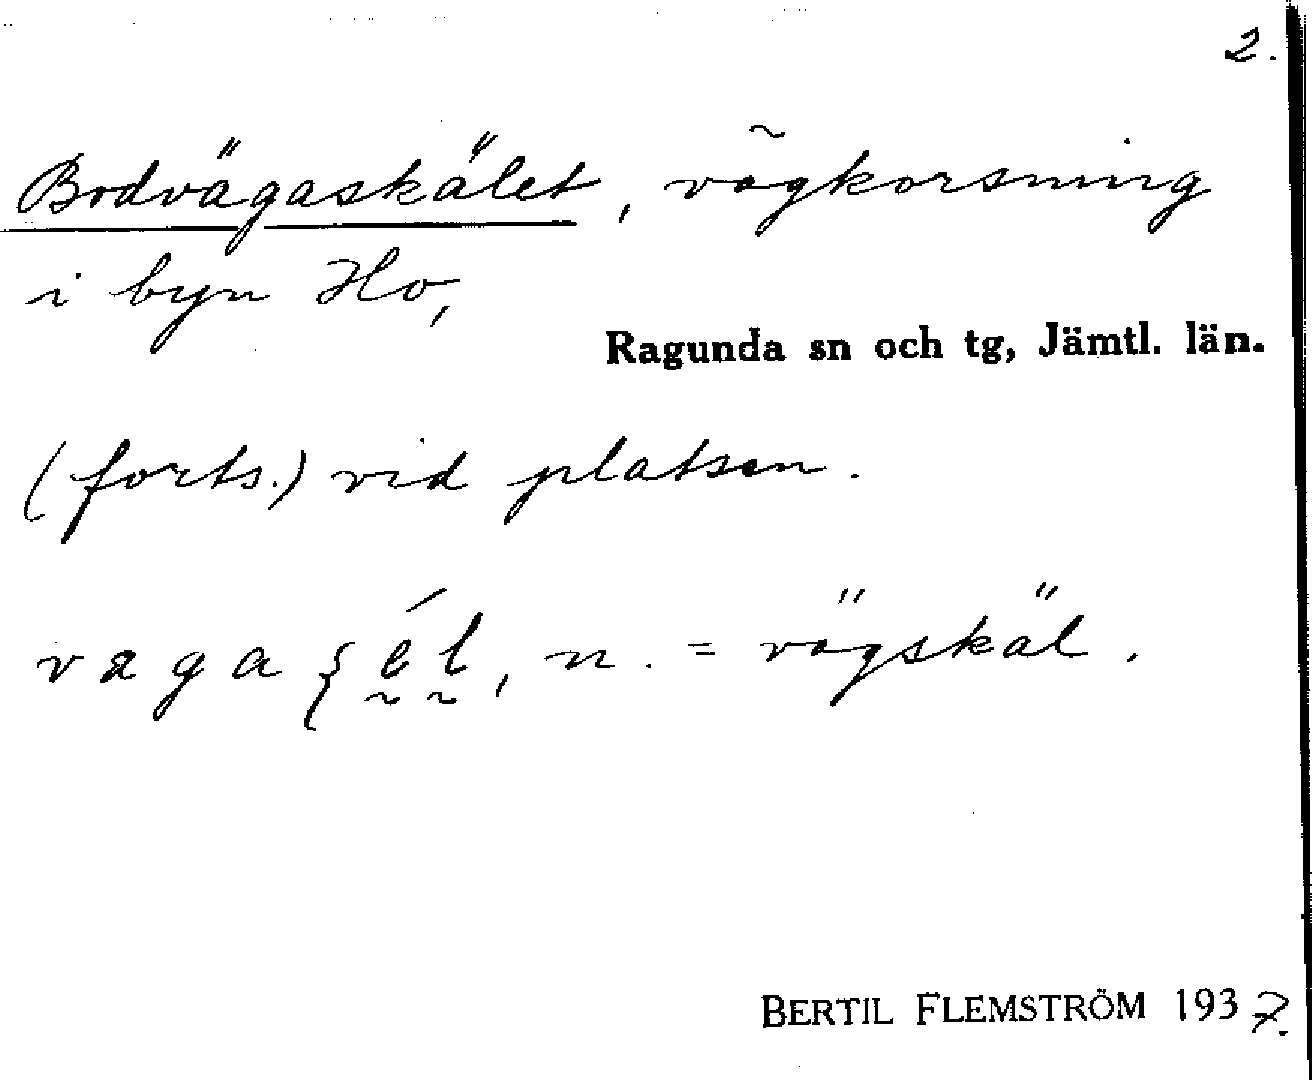 2.
Bodvägaskälet, vägkorsning
i byn Ho,
Ragunda sn och tg, Jämtl. län.
(forts.) vid platsen.
n. = vägskäl.
BERTIL FLEMSTRÖM 1937.